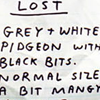 LOST
GREY + WHITE
PIDGEON WITH
BLACK BITS.
NORMAL SIZE
A BIT MANGY